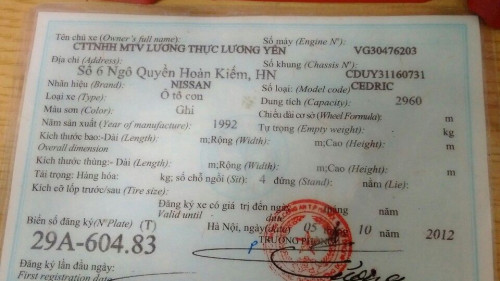 Tên chủ xe (Owner's full name): Số máy (Engine Nº): VG30476203
CTTNHH MTV LƯƠNG THỰC LƯƠNG YÊN
Địa chỉ (Address): Số khung (Chassis Nº): CDUY31160731
Số 6 Ngô Quyền Hoàn Kiếm, HN
Nhãn hiệu (Brand): NISSAN Số loại: (Model code) CEDRIC
Loại xe (Type): Ô tô con Dung tích (Capacity): 2960
Màu sơn (Color): Ghi Chiều dài cơ sở (Wheel Formula): m
Năm sản xuất (Year of manufacture): 1992 Tự trọng (Empty weight): kg
Kích thước bao:-Dài (Length): m;Rộng (Width): m;Cao (Height): m
Overall dimension
Kích thước thùng:-Dài (Length): m;Rộng (Width): m;Cao (Height): m
Tải trọng: Hàng hóa: kg; số chỗ ngồi (Sit): 4 đứng (Stand): nằm (Lie):
Kích cỡ lốp trước/sau (Tire size):
Đăng ký xe có giá trị đến ngày tháng năm
Valid until
Biển số đăng ký(NºPlate) (T) Hà Nội, ngày(date) 05 10 năm 2012
29A-604.83 TRƯỞNG PHÒNG
Đăng ký lần đầu ngày:
First registration date